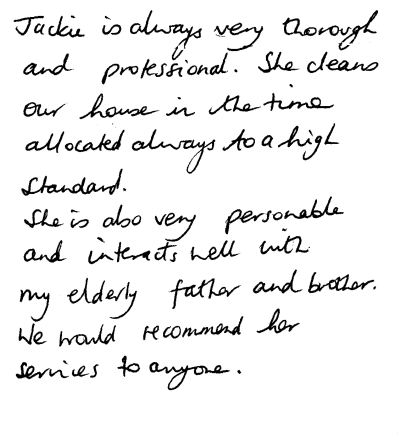 Jackie is always very thorough
and professional. She cleans
our house in the time
allocated always to a high
standard.
She is also very personable
and interacts well with
my elderly father and brother.
We would recommend her
services to anyone.